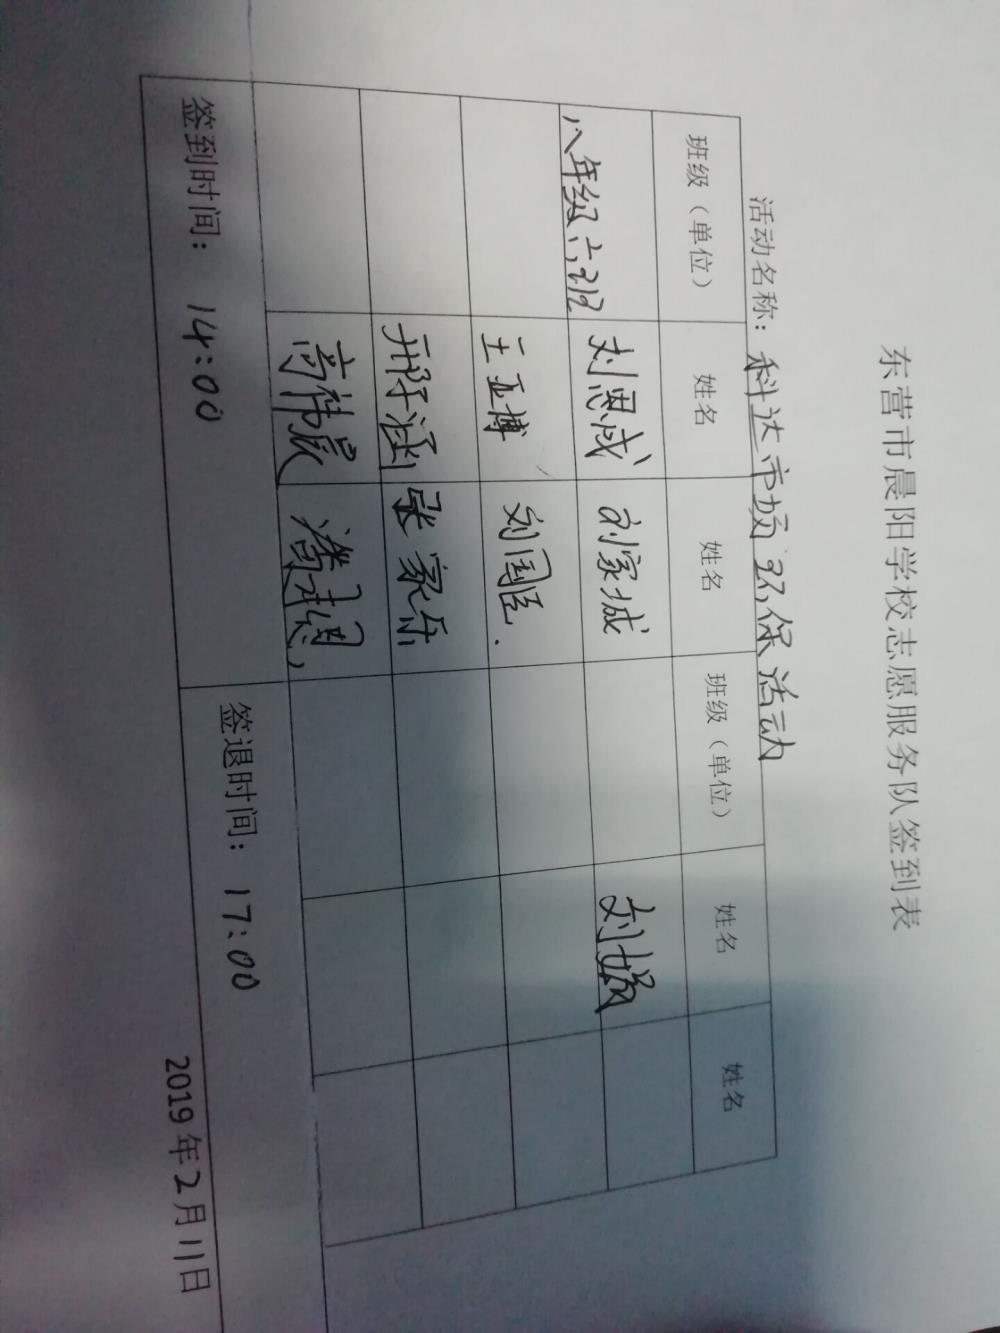 东营市晨阳学校志愿服务队签到表
活动名称：科达市场环保活动
班级（单位） 姓名 姓名 班级（单位） 姓名 姓名
八年级六班 刘恩成 刘家城 刘娟
王亚博 刘国臣.
邢子涵 张家乐
高梓宸
签到时间： 14:00 签退时间： 17:00
2019年2月11日